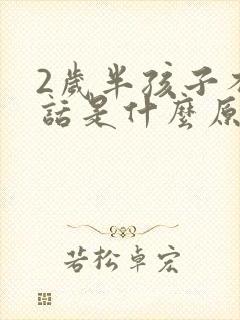 2歲半孩子
話是什麼原
若松卓宏